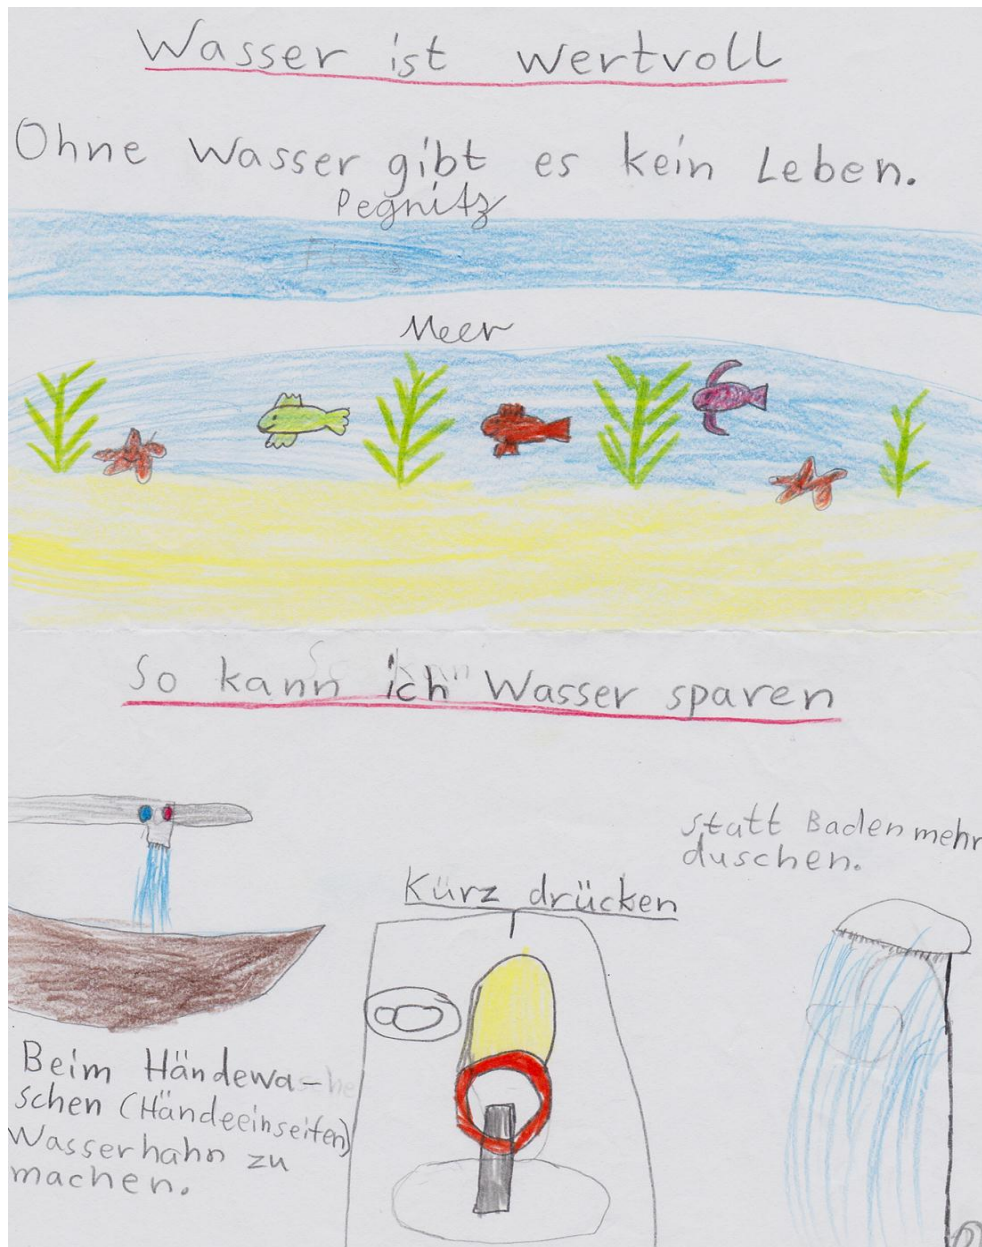 Wasser ist wertvoll
Ohne Wasser gibt es kein Leben.
Pegnitz
Meer
So kann ich Wasser sparen
statt Baden mehr
duschen.
Kürz drücken
Beim Händewa-
schen (Händeeinseifen)
Wasserhahn zu
machen.